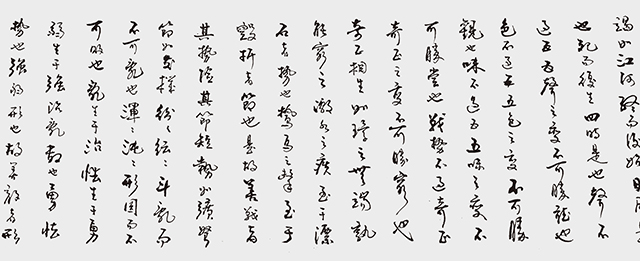 竭如江河終而復始日月是
也死而復生四時是也聲不
過五五聲之變不可勝聽也
色不過五五色之變不可勝
觀也味不過五五味之變不
可勝嘗也戰勢不過奇正
奇正之變不可勝窮也
奇正相生如環之無端孰
能窮之激水之疾至于漂
石者勢也鷙鳥之擊至于
毀折者節也是故善戰者
其勢險其節短勢如彍弩
節如發機紛〻紜〻斗亂而
不可亂也渾〻沌〻形圓而不
可敗也亂生于治怯生于勇
弱生于強治亂數也勇怯
勢也強弱形也故善動敵者形